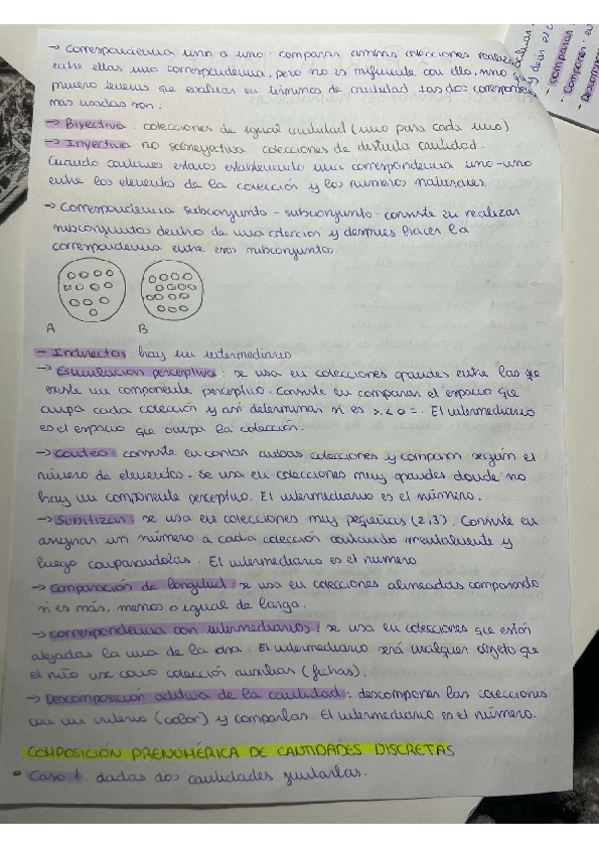 → Correspondencia uno a uno: comparar ambas colecciones realizar
entre ellas una correspondencia, pero no es suficiente con ello, sino que
primero tenemos que evaluar en términos de cantidad. Las dos correspondencias
mas usadas son:
→ Biyectiva: colecciones de igual cantidad (uno para cada uno)
→ Inyectiva no sobreyectiva: colecciones de distinta cantidad.
Cuando contamos estamos estableciendo una correspondencia uno-uno
entre los elementos de la colección y los números naturales.
→ Correspondencia subconjunto - subconjunto: consiste en realizar
subconjuntos dentro de una colección y después hacer la
correspondencia entre esos subconjuntos.
A B
- Indirectas: hay un intermediario
→ Estimación perceptiva: se usa en colecciones grandes entre las que
existe un componente perceptivo. Consiste en comparar el espacio que
ocupa cada colección y así determinar si es >, < o =. El intermediario
es el espacio que ocupa la colección.
→ Conteo: consiste en contar ambas colecciones y comparar según el
número de elementos. Se usa en colecciones muy grandes donde no
hay un componente perceptivo. El intermediario es el número.
→ Subitizar: se usa en colecciones muy pequeñas (2,3). Consiste en
asignar un número a cada colección contando mentalmente y
luego comparandolas. El intermediario es el numero
→ Comparación de longitud: se usa en colecciones alineadas comparando
si es más, menos o igual de larga.
→ Correspondencia con intermediarios: se usa en colecciones que están
alejadas la una de la otra. El intermediario será cualquier objeto que
el niño use como colección auxiliar (fichas).
→ Descomposición aditiva de la cantidad: descomponer las colecciones
con un criterio (color) y compararlas. El intermediario es el número.
COMPOSICION PRENUMÉRICA DE CANTIDADES DISCRETAS
• Caso 1. dadas dos cantidades juntarlas.
comparar
· Componer:
· Descompon